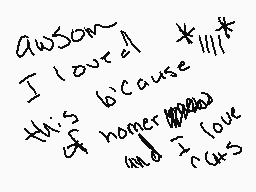 awsom *||||*
I loved
this b'cause
of homer
and I love
cats